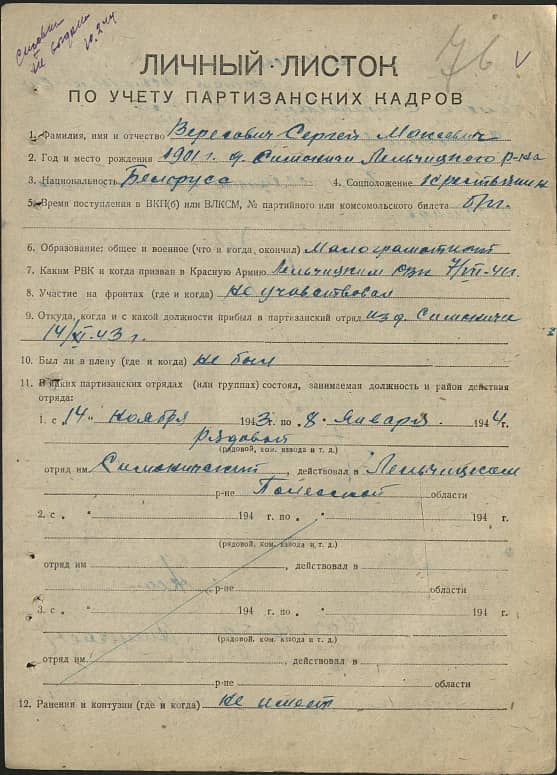 10.2.44
76 V
ЛИЧНЫЙ ЛИСТОК
ПО УЧЕТУ ПАРТИЗАНСКИХ КАДРОВ
1. Фамилия, имя и отчество Вересович Сергей Моисеевич
2. Год и место рождения 1901 г. д. Симоничи Лельчицкого р-на
3. Национальность Белоруса 4. Соцположение Крестьянин
5. Время поступления в ВКП(б) или ВЛКСМ, № партийного или комсомольского билета б/п.
6. Образование: общее и военное (что и когда окончил) Малограмотный
7. Каким РВК и когда призван в Красную Армию Лельчицким РВК 7/VII-41г.
8. Участие на фронтах (где и когда) Не участвовал
9. Откуда, когда и с какой должности прибыл в партизанский отряд из д. Симоничи
14/XI-43 г.
10. Был ли в плену (где и когда) не был
11. В каких партизанских отрядах (или группах) состоял, занимаемая должность и район действия
отряда:
1. с „14" ноября 1943 г. по „8" января 1944 г.
рядовой
(рядовой, ком. взвода и т. д.)
отряд им Симонический, действовал в Лельчицком
р-не Полесской области
2. с „ " 194 г. по „ " 194 г.
(рядовой, ком. взвода и т. д.)
отряд им , действовал в
р-не области
3. с „ " 194 г. по „ " 194 г.
(рядовой, ком. взвода и т. д.)
отряд им. , действовал в
р-не области
12. Ранения и контузии (где и когда) не имеет